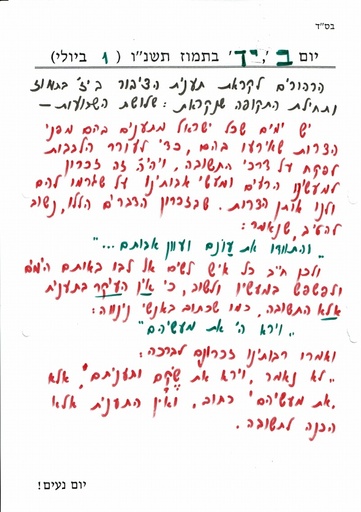 בס"ד
יום ב', יד' בתמוז תשנ"ו ( 1 ביולי)
הרהורים לקראת תענית הציבור ב יז' בתמוז
ותחילת התקופה שנקראת: שלושת השבועות –
יש ימים שכל ישראל מתענים בהם מפני
הצרות שאירעו בהם, כדי לעורר הלבבות
לפקח על דרכי התשובה, ויהיה זה זכרון
למעשינו הרעים ומעשי אבותינו על שגרמו להם
ולנו אותן הצרות. שבזכרון הדברים הללו, נשוב
להטיב, שנאמר:
"והתוודו את עוונם ועוון אבותם..."
ולכן חייב כל איש לשים אל לבו באותם הימים
ולפשפש במעשיו ולשוב, כי אין העיקר בתענית
אלא התשובה, כמו שכתוב באנשי נינווה:
"וירא ה' את מעשיהם"
ואמרו רבותינו זכרונם לברכה:
"לא נאמר, וירא את שקם ותעניתם, אלא
'את מעשיהם' כתוב, ואין התענית אלא
הכנה לתשובה.
יום נעים!